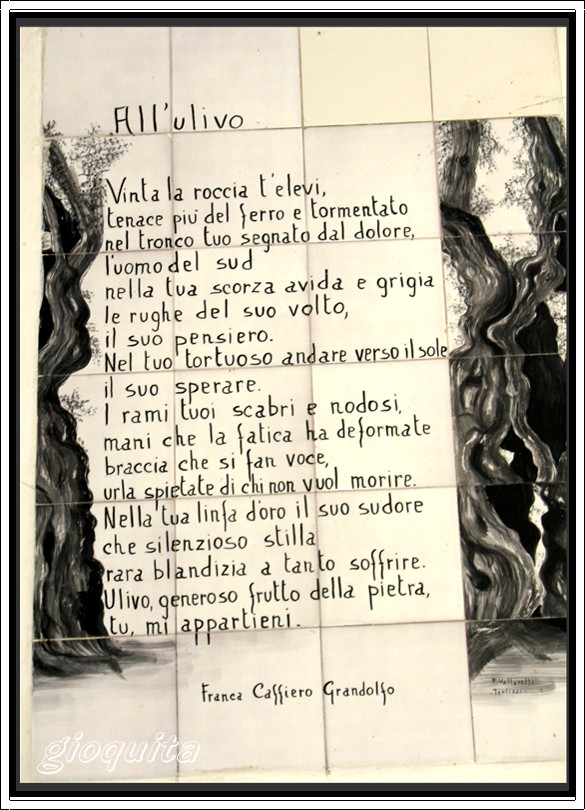 All'ulivo
Vinta la roccia t'elevi,
tenace piu del ferro e tormentato
nel tronco tuo segnato dal dolore,
l'uomo del sud
nella tua scorza avida e grigia
le rughe del suo volto,
il suo pensiero.
Nel tuo tortuoso andare verso il sole
il suo sperare.
I rami tuoi scabri e nodosi,
mani che la fatica ha deformate
braccia che si fan voce,
urla spietate di chi non vuol morire.
Nella tua linfa d'oro il suo sudore
che silenzioso stilla
rara blandizia a tanto soffrire.
Ulivo, generoso frutto della pietra,
tu, mi appartieni.
Franca Cassiero Grandolfo
gioquita